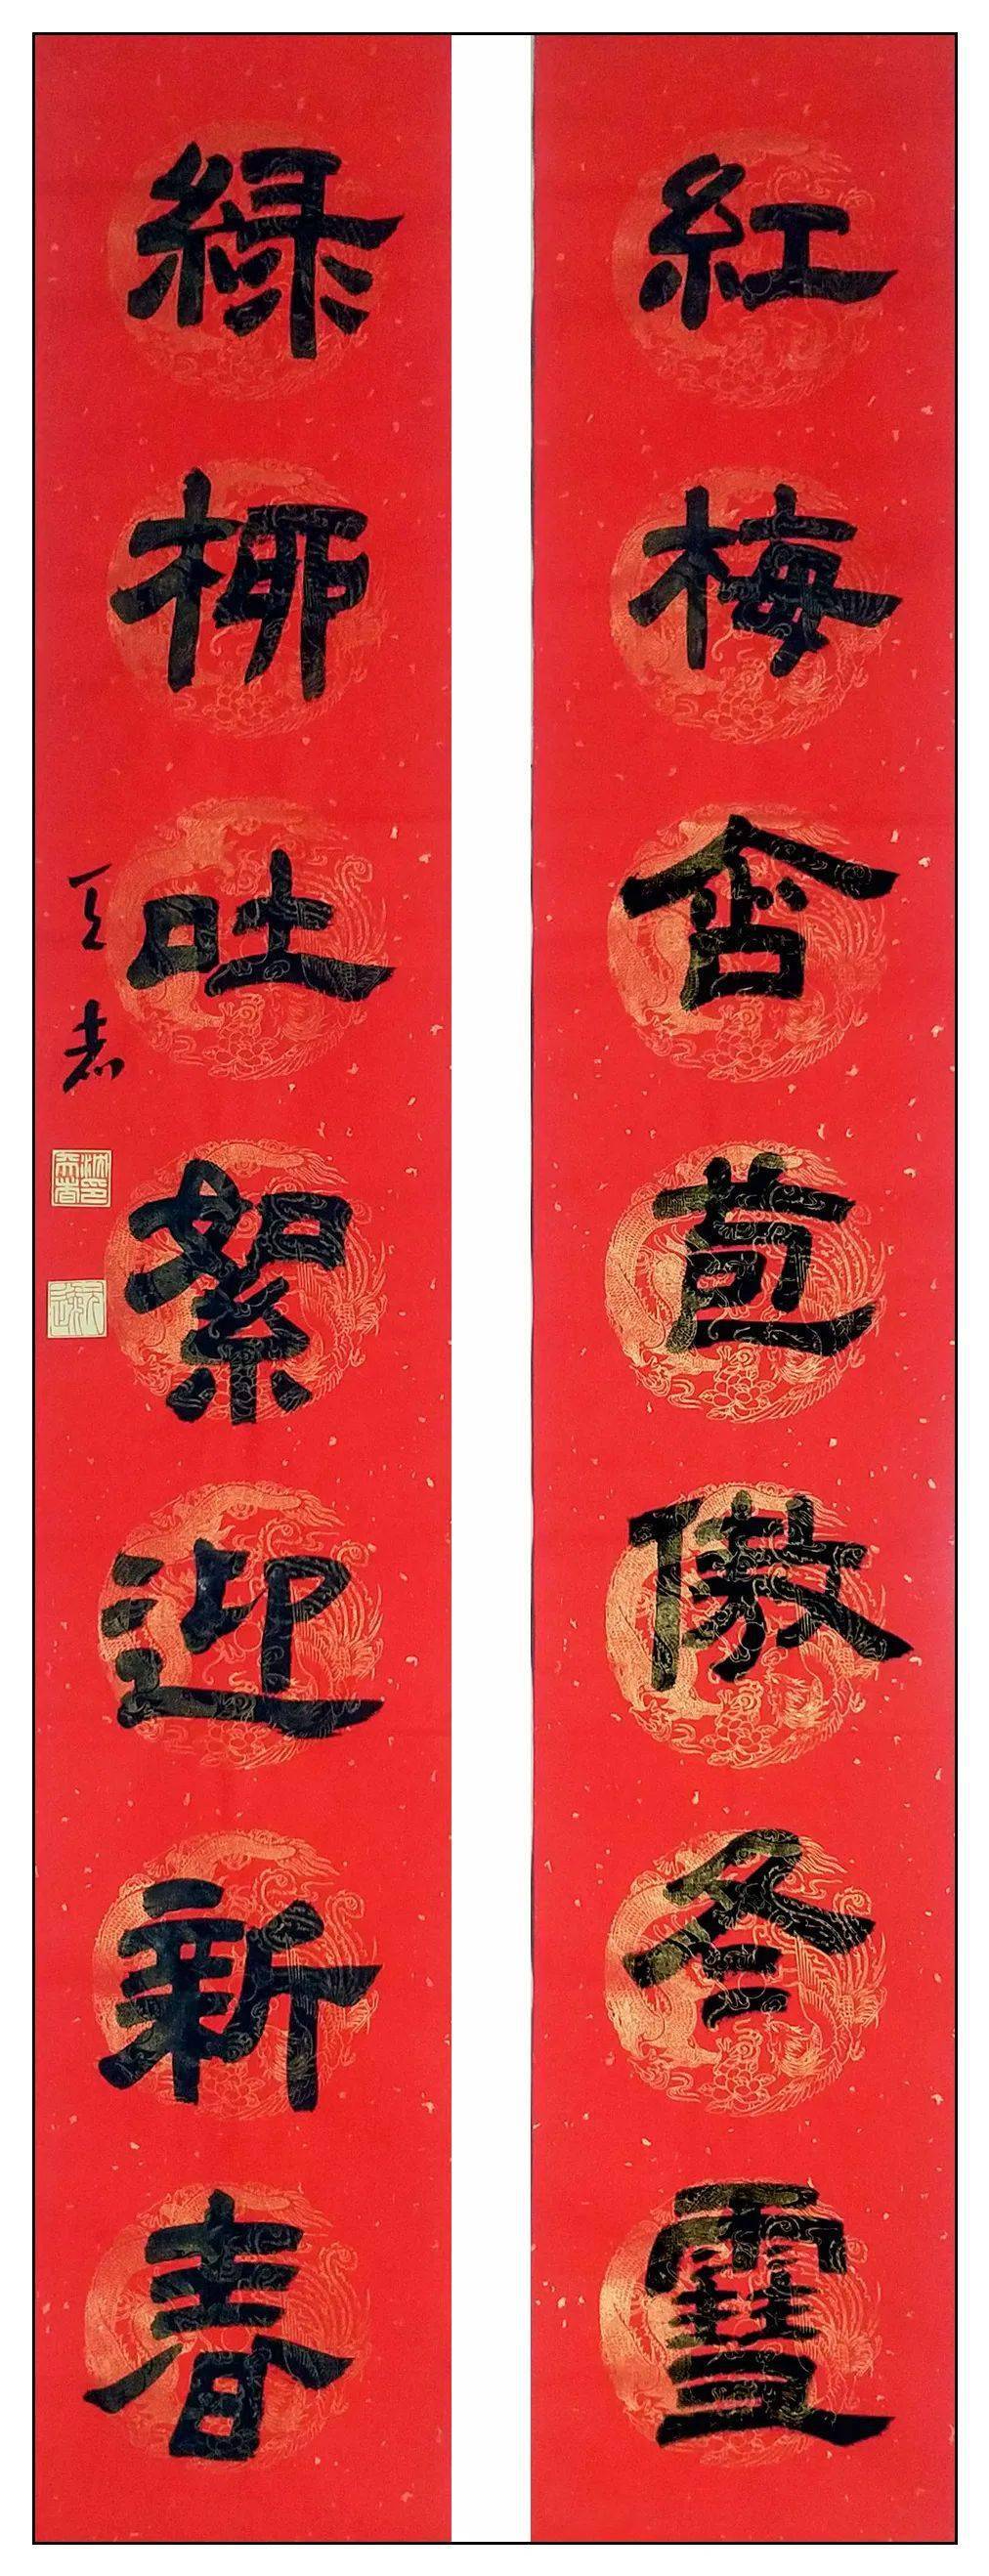 紅梅含苞傲冬雪
綠柳吐絮迎新春